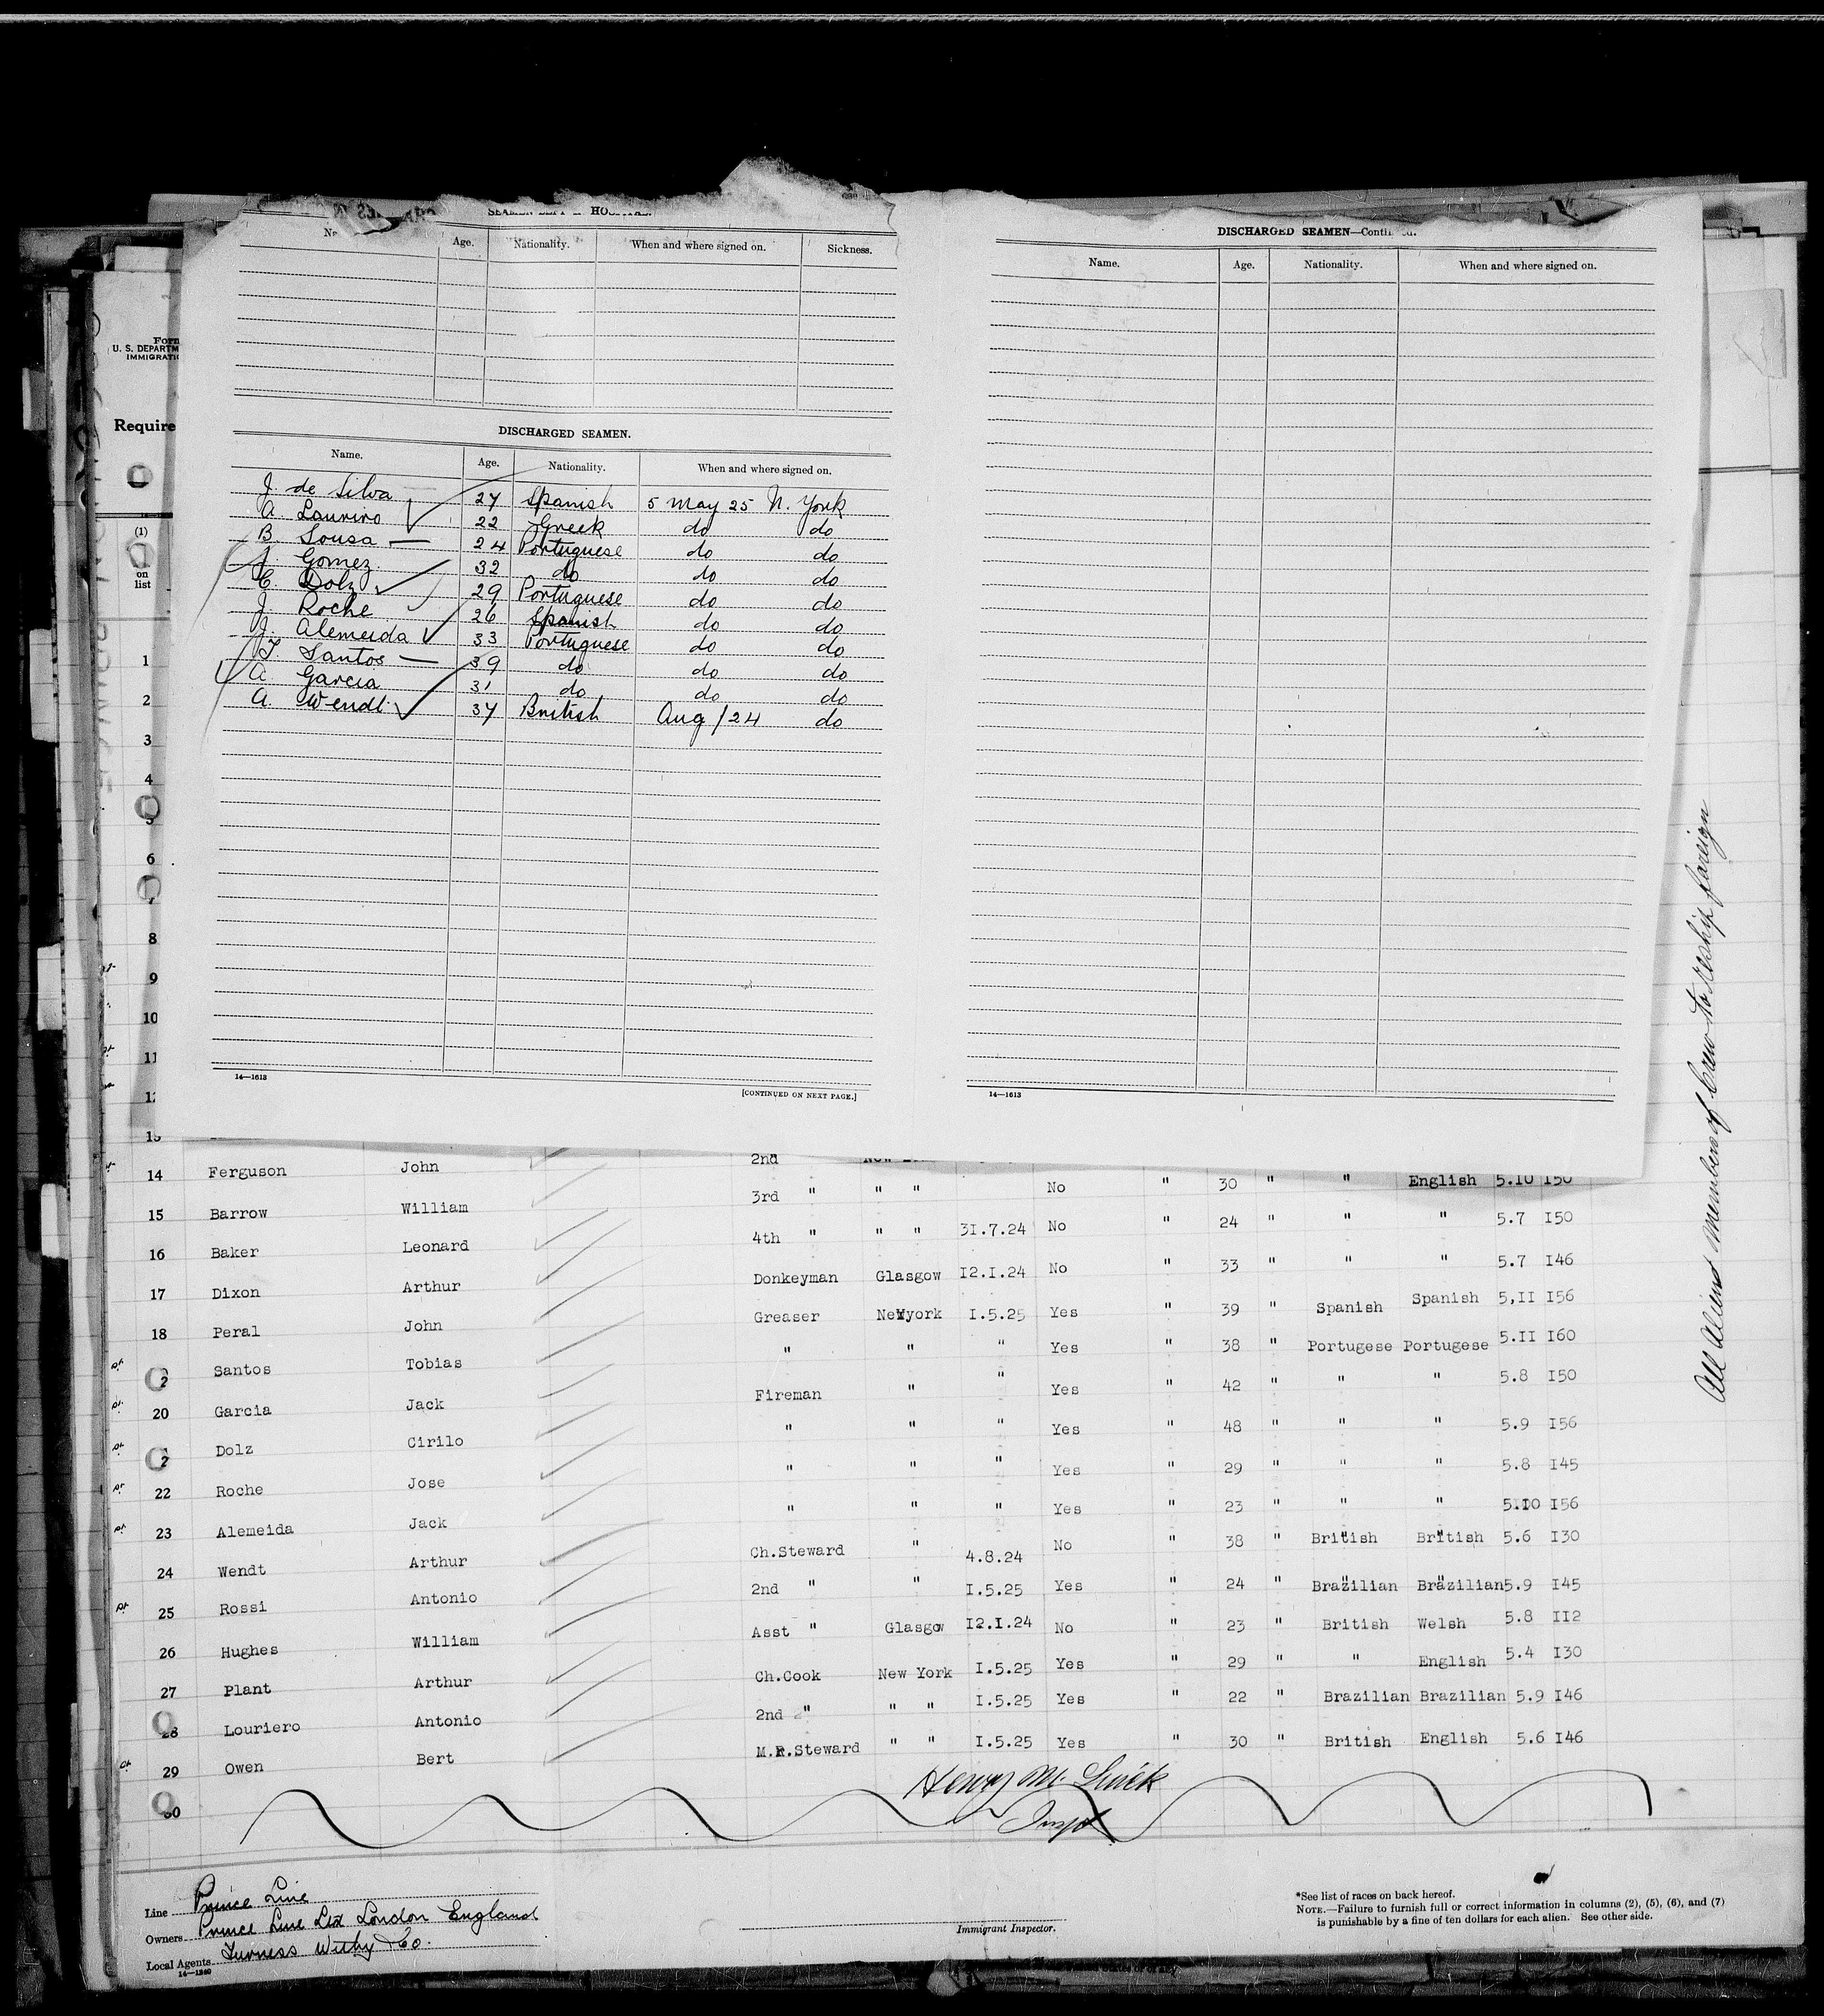 HO
Age. Nationality. When and where signed on. Sickness.
DISCHARGED SEAMEN.
Name. Age. Nationality. When and where signed on.
J. de Silva 27 Spanish 5 May 25 N. York
A. Lauriro 22 Greek do do
B. Sousa — 24 Portuguese do do
J. Gomez. 32 do do do
C. Dolz 29 Portuguese do do
J. Roche 26 Spanish do do
J. Alemeida 33 Portuguese do do
T. Santos — 39 do do do
A Garcia 31 do do do
A. Wendt. 37 British Aug / 24 do
14—1613
[CONTINUED ON NEXT PAGE.]
DISCHARGED SEAMEN—Conti
Name. Age. Nationality. When and where signed on.
14—1613
Form
U. S. DEPARTM
IMMIGRATIO
Require
(1)
on
list
1
2
3
4
5
6
8
9
10
11
14 Ferguson John 2nd
15 Barrow William 3rd " " " No " 30 " " English 5.10 I50
16 Baker Leonard 4th " " " 31.7.24 No " 24 " " " 5.7 I50
17 Dixon Arthur Donkeyman Glasgow I2.I.24 No " 33 " " " 5.7 I46
18 Peral John Greaser Newyork I.5.25 Yes " 39 " Spanish Spanish 5,II I56
Santos Tobias " " " Yes " 38 " Portugese Portugese 5.II I60
20 Garcia Jack Fireman " " Yes " 42 " " " 5.8 I50
Dolz Cirilo " " " Yes " 48 " " " 5.9 I56
22 Roche Jose " " " Yes " 29 " " " 5.8 I45
23 Alemeida Jack " " " Yes " 23 " " " 5.I0 I56
24 Wendt Arthur Ch.Steward " 4.8.24 No " 38 " British British 5.6 I30
25 Rossi Antonio 2nd " " I.5.25 Yes " 24 " Brazilian Brazilian 5.9 I45
26 Hughes William Asst " Glasgow I2.I.24 No " 23 " British Welsh 5.8 II2
27 Plant Arthur Ch.Cook New York I.5.25 Yes " 29 " " English 5.4 I30
28 Louriero Antonio 2nd " " " I.5.25 Yes " 22 " Brazilian Brazilian 5.9 I46
29 Owen Bert M.R.Steward " " I.5.25 Yes " 30 " British English 5.6 I46
Henry M.
Insp
All Aliens Members of Crew to reship foreign
Line Prince Line
Owners Prince Line Ltd London England
Local Agents Furness Withy & Co.
14—1240
Immigrant Inspector.
*See list of races on back hereof.
NOTE.—Failure to furnish full or correct information in columns (2), (5), (6), and (7)
is punishable by a fine of ten dollars for each alien. See other side.